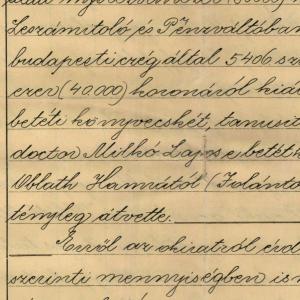 Leszámitoló és Pénzváltóban
budapesti czég által 5406 sz
ezer (40.000) koronáról kiál
betéti könyvecskét, tanusit
doctor Milkó Lajos e betétk
Oblath Hannától (Jolánto
tényleg átvette.
Erről az okiratról érd
szerinti mennyiségben is m